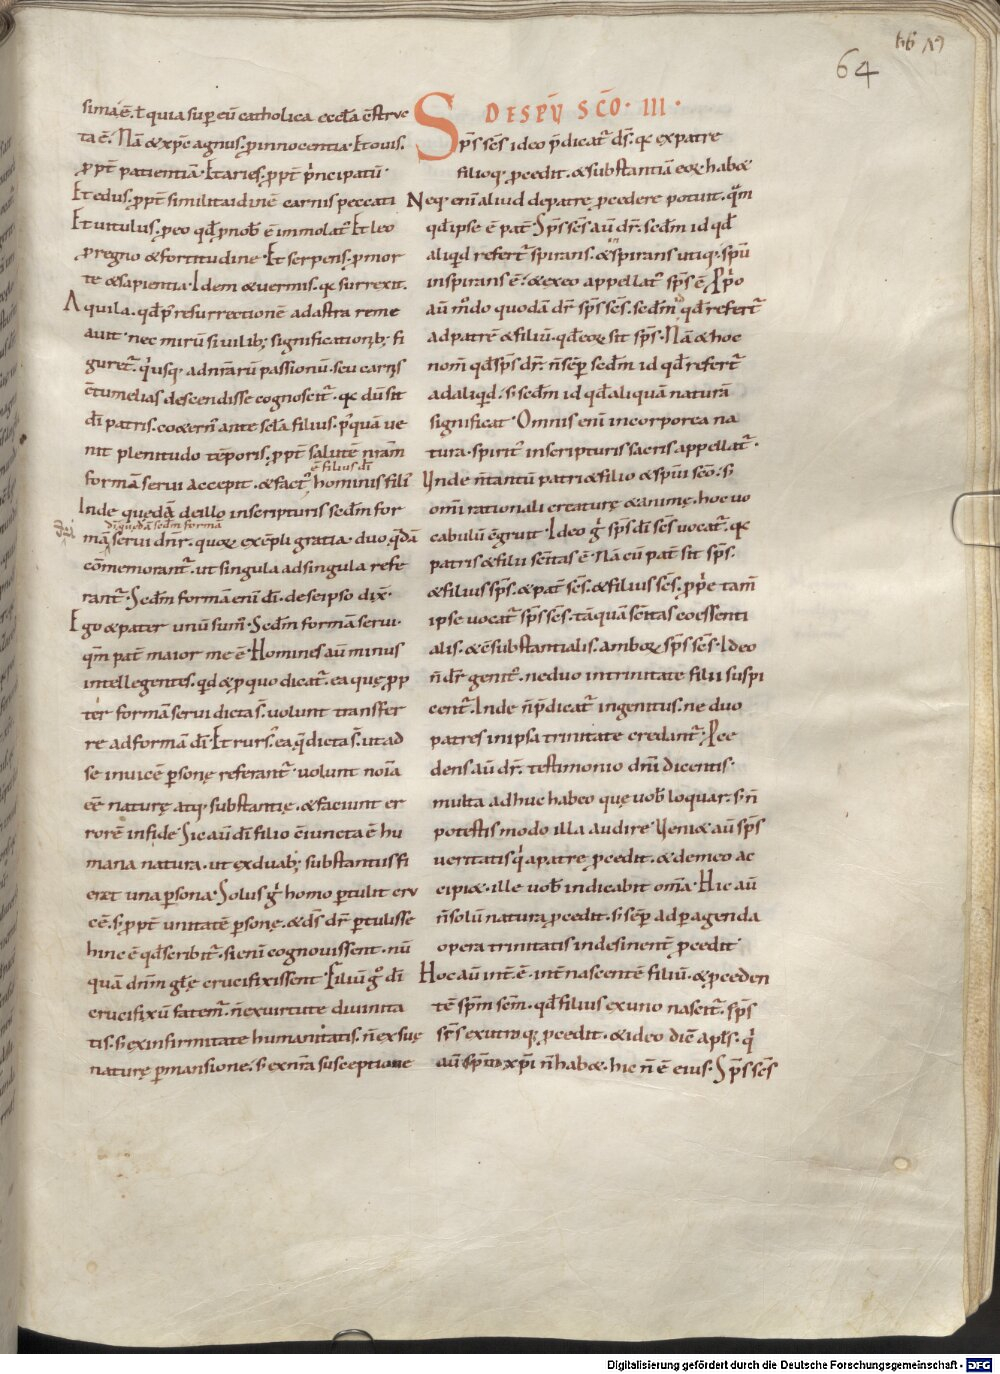 64
simā ē. ł quia sup eū catholica eccła ēstruc
ta ē. Nā & xpc agnus. ꝓ innocentia. Et ouis.
ꝓpt patientiā. Et aries. ꝓpt principatū.
Et edus. ꝓpt similitudinē carnis peccati
Et uitulus. ꝓ eo qđ ꝓ nob ē immolat. Et leo
ꝓ regno & fortitudine. Et serpens. ꝓ mor
te & sapientia. Idem & uermis. qa surrexit.
Aquila. qđ p resurrectionē ad astra reme
auit. nec mirū si uilib; significationib; fi
guret. qui usq; ad nrarū passionū. seu carnis
cōtumelias descendisse cognoscit. qa dū sit
di patris. coaetn ante secla filius. p quā ue
nit plenitudo tēporis. ꝓpt salutē nram
ē filius di
formā serui accepit. & fact hominis filius
Inde quedā de illo in scripturis sedm for
di quedā sedm formā
mā serui dnr. quoꝝ exēpli gratia. duo quedā
cōmemorant. ut singula ad singula refe
rant. Sedm formā eni di. de seipso dix.
Ego & pater unū sum. Sedm formā serui.
qm pat maior me ē. Homines aū minus
intellegentes. qd & p quo dicat. ea quę ꝓp
ter formā serui dicta s. uolunt transfer
re ad formā di. Et rurs. ea q dicta s. ut ad
se inuicē psonę referant. uolunt noia
eē naturę atq; substantię. & faciunt er
rorē in fide. Sic aū di filio ciuncta ē hu
mana natura. ut ex duab; substantiis fi
eret una psona. Solus g homo ptulit cru
cē. s; ꝓpt unitatē psonę. & ds dr ptulisse
hinc ē qđ scribit. si eni cognouissent. nū
quā dnm głę crucifixissent. Filiū g di
crucifixū fatem. n ex uirtute diuinita
tis. s; ex infirmitate humanitatis. n ex suę
naturę pmansione. s; ex nra susceptione
DE SPU SCO. III.
Sps scs ideo pdicat ds. qa ex patre
filioq; ꝓcedit. & substantiā eoꝝ habet
Neq; eni aliud de patre ꝓcedere potuit. qm
qđ ipse ē pat. Sps scs aū dr. sedm id qđ
ad aliqd refert spirans. & spirans utiq; spu
inspirans ē. & ex eo appellat sps ē. Proprio
aū modo quodā dr sps scs. sedm qđ refert
ad patrē & filiū. qđ eoꝝ sit sps. Nā & hoc
nom qđ sps dr. n semp sedm id qđ refert
ad aliqd. s; sedm id qđ aliquā naturā
significat. Omnis eni incorporea na
tura. spirit in scripturis sacris appellat.
Unde n tantū patri & filio & spui sco. s;
omi rationali creaturę & animę. hoc uo
cabulū cgruit. Ideo g sps di scs uocat. qa
patris & filii scitas ē. Nā cū pat sit sps.
& filius sps. & pat scs. & filius scs. ꝓprie tam
ipse uocat sps scs. tāquā scitas coessenti
alis. & csubstantialis. amboꝝ sps scs. Ideo
n dr genit. ne duo in trinitate filii suspi
cent. Inde n pdicat ingenitus. ne duo
patres in ipsa trinitate credant. Proce
dens aū dr. testimonio dni dicentis.
multa adhuc habeo quę uob loquar. s; n
potestis modo illa audire. Ueniet aū sps
ueritatis qui a patre ꝓcedit. & de meo ac
cipiet. ille uob indicabit omia. Hic aū
n solū natura ꝓcedit. s; semp ad pagenda
opera trinitatis indesinent ꝓcedit.
Hoc aū int ē. int nascentē filiū. & ꝓceden
tē spm scm. qđ filius ex uno nascit. sps
scs ex utroq; ꝓcedit. & ideo dicit apls. qui
aū spm xpi n habet. hic n ē eius. Sps scs
Digitalisierung gefördert durch die Deutsche Forschungsgemeinschaft - DFG